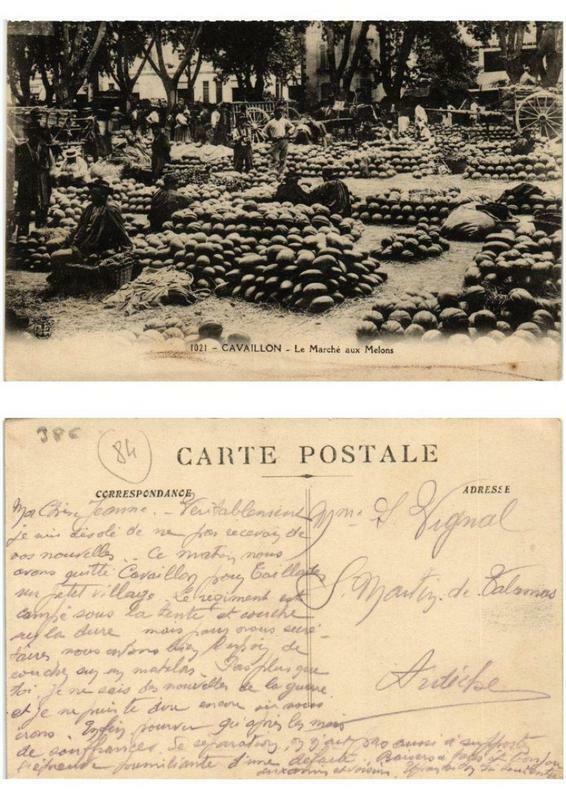 1021 - CAVAILLON - Le Marché aux Melons
386
84
CARTE POSTALE
CORRESPONDANCE
ADRESSE
Ma Chère Jeanne. - Véritablement
je suis désolé de ne pas recevoir de
vos nouvelles. Ce matin nous
avons quitté Cavaillon pour Taillades
un petit village. Le régiment est
campé sous la tente et couche
sur la dure mais pour nous secré-
taires nous avons bien l'espoir de
coucher sur un matelas. Pas plus que
toi je ne sais des nouvelles de la guerre
et je ne puis te dire encore où nous
irons. Enfin pourvu qu'après les mois
de souffrances, de séparation, on n'ait pas aussi à supporter
l'épreuve humiliante d'une défaite. Baisers à
Mme S Vignal
St Martin de Valamas
Ardèche